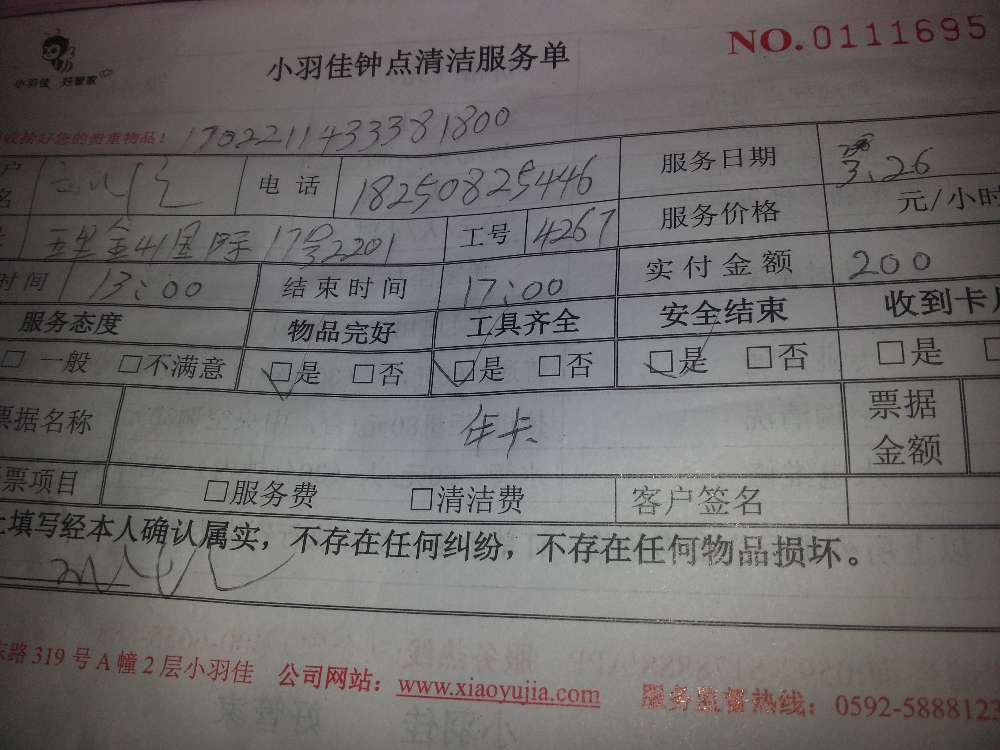 小羽佳 好管家
小羽佳钟点清洁服务单
NO.0111695
收拾好您的贵重物品! 1702211433381800
电话 18250825446 服务日期 3.26
国际17号2201 工号 4267 服务价格 元/小时
时间 13:00 结束时间 17:00 实付金额 200
服务态度 物品完好 工具齐全 安全结束 收到卡
□一般 □不满意 □是 □否 □是 □否 □是 □否 □是 □
票据名称 年卡 票据金额
票项目 □服务费 □清洁费 客户签名
填写经本人确认属实，不存在任何纠纷，不存在任何物品损坏。
东路319号A幢2层小羽佳 公司网站：www.xiaoyujia.com 服务监督热线：0592-5888123